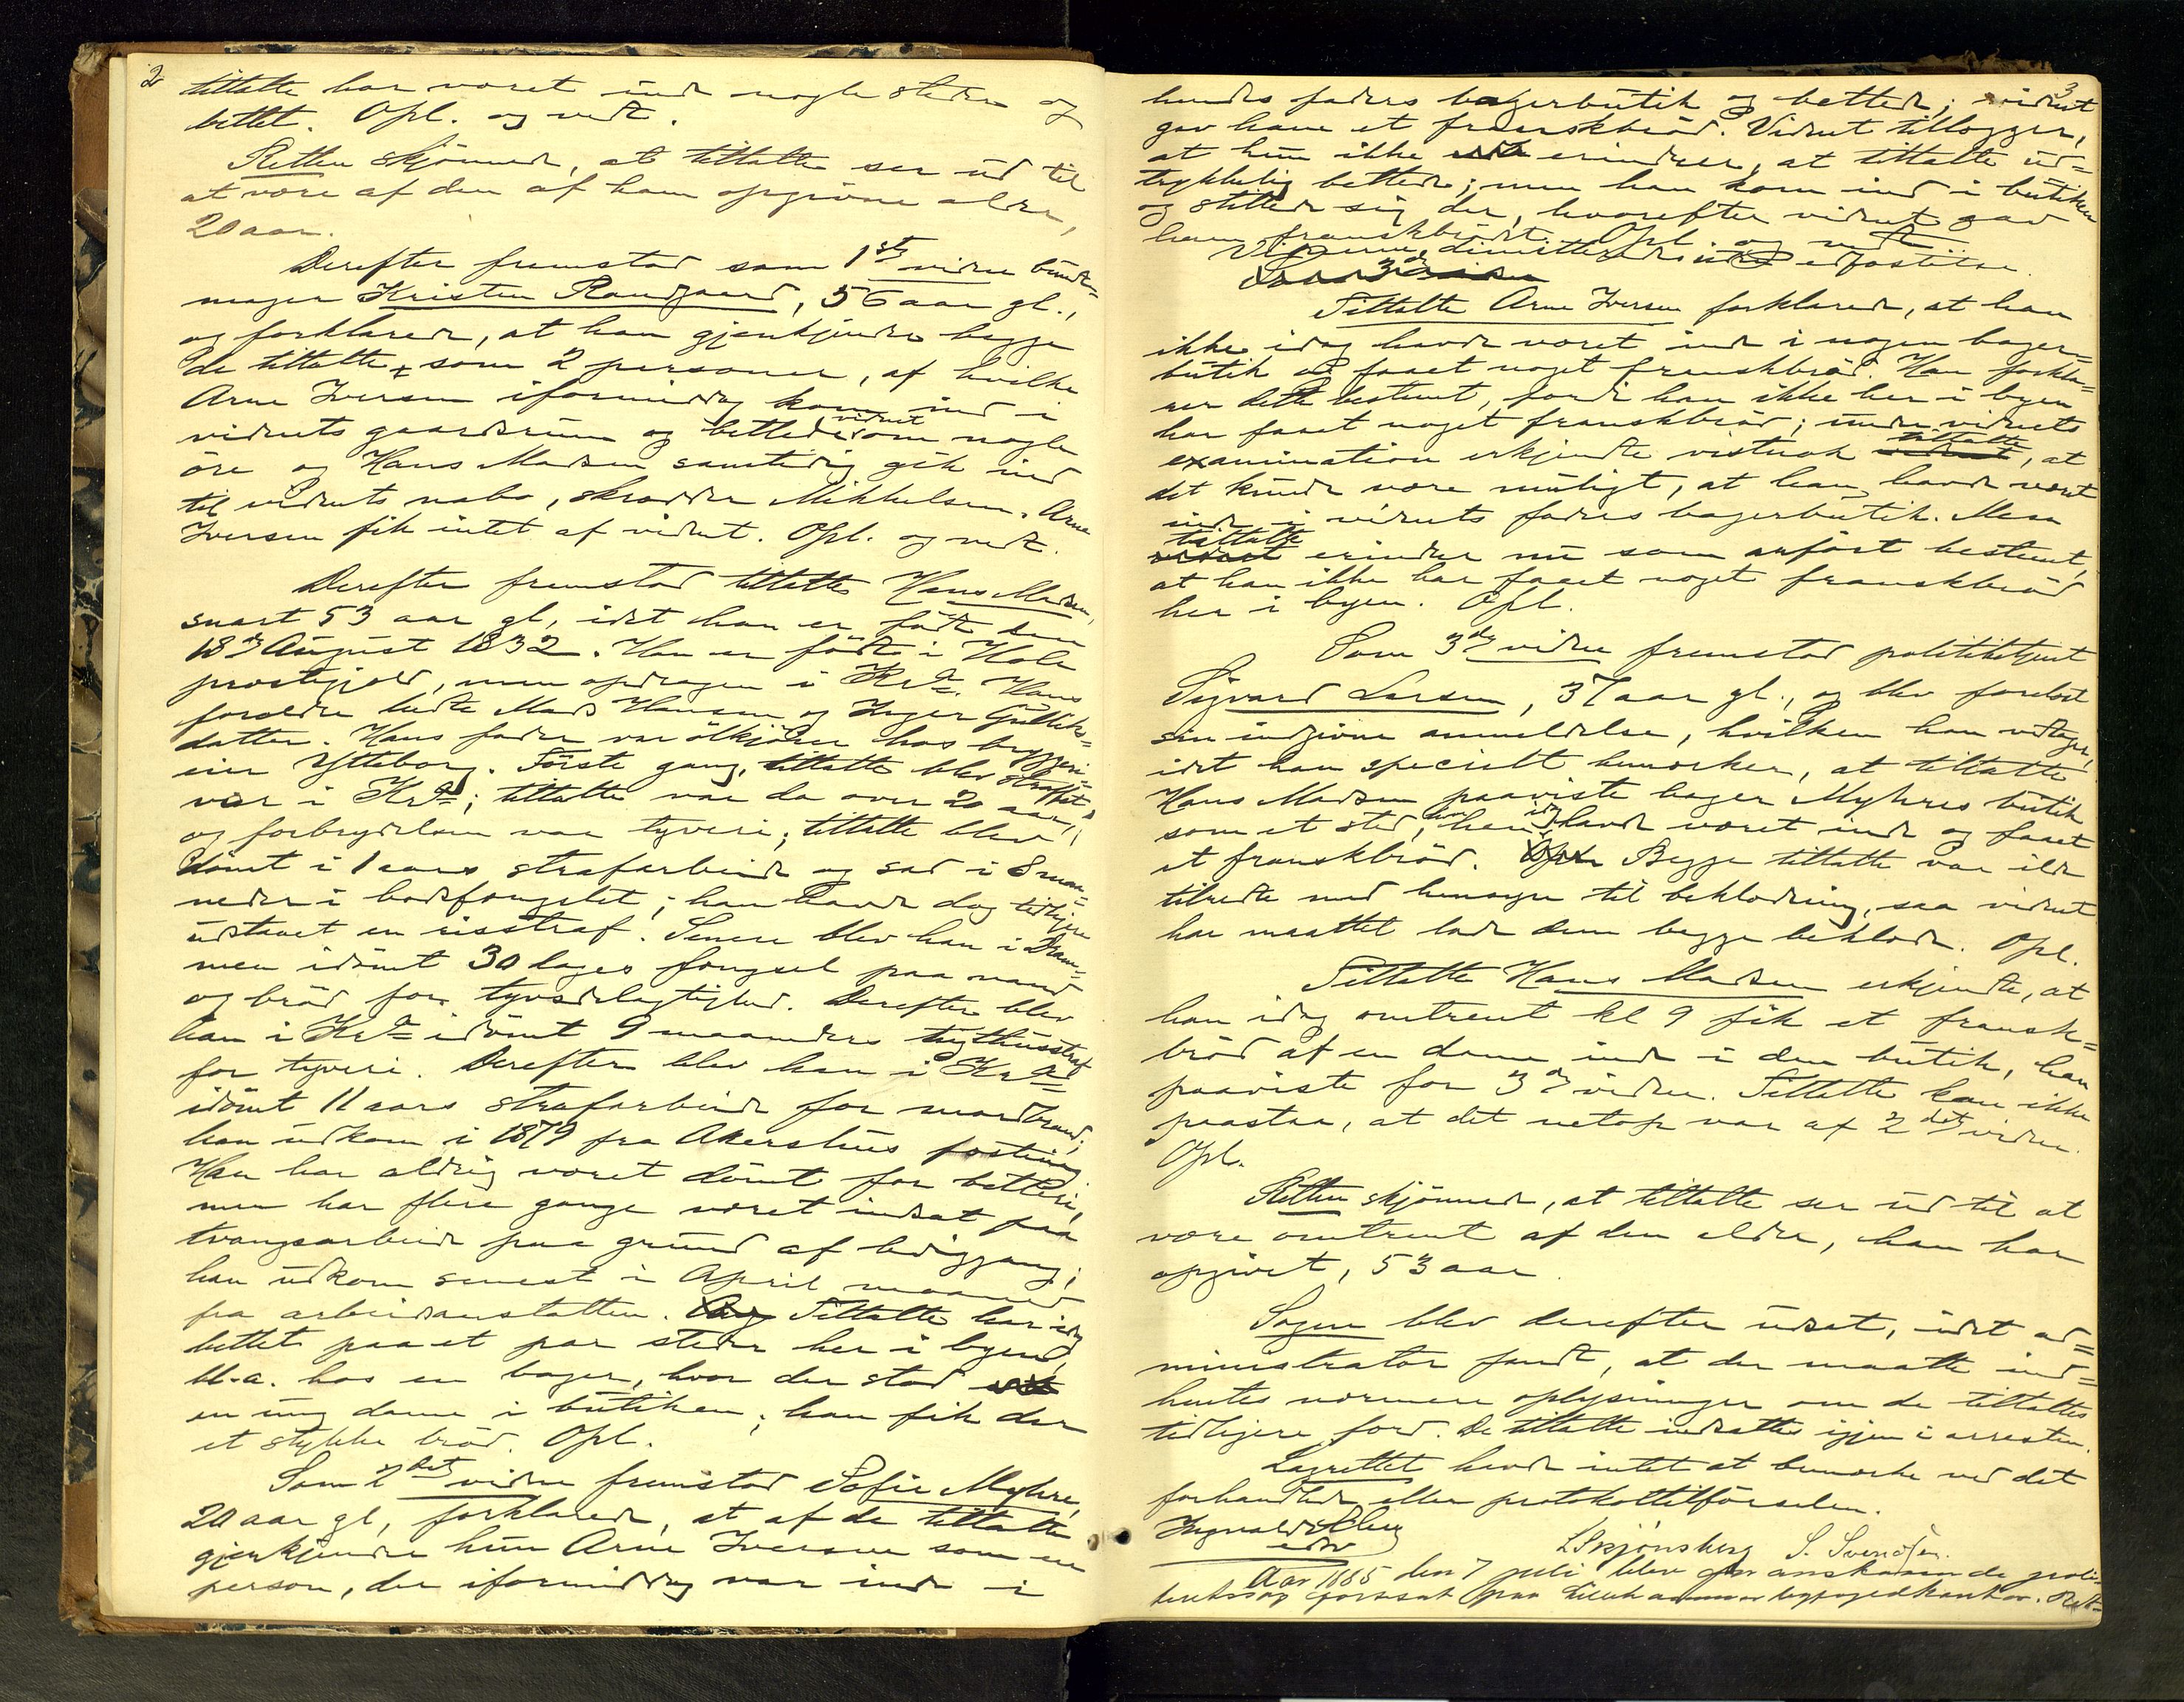 2
tiltalte har været inde nogle steder og
bettet. Opl. og vedt.
Retten skjønnede, at tiltalte ser ud til
at være af den af ham opgivne alder,
20 aar.
Derefter fremstod som 1ste vidne bundt-
mager Kristen Randgaard, 56 aar gl.,
og forklarede, at han gjenkjender begge
de tiltalte som 2 personer, af hvilke
Arne Iversen iformiddag kom ind i
vidnets gaardsrum og bettede vidnet om nogle
øre og Hans Madsen samtidig gik ind
til vidnets nabo, skrædder Mikkelsen. Arne
Iversen fik intet af vidnet. Opl. og vedt.
Derefter fremstod tiltalte Hans Madsen,
snart 53 aar gl, idet han er født den
18de August 1832. Han er født i Hole
prestegjeld, men opdragen i Kr.a. Hans
forældre hedte Mads Hansen og Inger Gulliks-
datter. Hans fader var ølkjører hos bryggeri-
eier Ytteborg. Første gang, tiltalte blev straffet,
var i Kr.a; tiltalte var da over 20 aar,
og forbrydelsen var tyveri; tiltalte blev
dømt i 1 aars strafarbeide og sad i 8 maa-
neder i bodsfængslet; han havde dog tidligere
udstaaet en risstraf. Senere blev han i Dram-
men idømt 30 dages fængsel paa vand
og brød for tyvsdelagtighed. Derefter blev
han i Kr.a idømt 9 maaneders tugthusstraf
for tyveri. Derefter blev han i Kr.a
idømt 11 aars strafarbeide for mordbrand;
han udkom i 1879 fra Akershus fæstning
Han har aldrig været dømt for betleri,
men har flere gange været indsat paa
tvangsarbeide paa grund af lediggang;
han udkom senest i April maaned
fra arbeidsanstalten. Tiltalte har idag
bettet paa et par steder her i byen,
bl.a. hos en bager, hvor der stod
en ung dame i butiken; han fik der
et stykke brød. Opl.
Som 2det vidne fremstod Sofie Myhre,
20 aar gl, forklarede, at af de tiltalte
gjenkjender hun Arne Iversen som en
person, der iformiddag var inde i
3
hendes faders bagerbutik og bettede; vidnet
gav ham et franskbrød. Vidnet tillægger,
at hun ikke erindrer, at tiltalte ud-
trykkelig bettede; men han kom ind i butiken
og stillede sig der, hvorefter vidnet gav
ham franskbrødet. Opl. og vedt.
Vidnerne dimitteredes uden edfæstelse.
Som 3die vidne
Tiltalte Arne Iversen forklarede, at han
ikke idag havde været inde i nogen bager-
butik og faaet noget franskbrød. Han forkla-
rer dette bestemt, fordi han ikke her i byen
har faaet noget franskbrød; under vidnets
examination erkjendte vistnok tiltalte, at
det kunde være muligt, at han havde været
inde i vidnets faders bagerbutik. Men
tiltalte erindrer nu som anført bestemt,
at han ikke har faaet noget franskbrød
her i byen. Opl.
Som 3die vidne fremstod politibetjent
Sigvard Larsen, 37 aar gl., og blev forelæst
sin indgivne anmeldelse, hvilken han vedtager,
idet han specielt bemærker, at tiltalte
Hans Madsen paaviste bager Myhres butik
som et sted, hvor han idag havde været inde og faaet
et franskbrød. Begge tiltalte var ilde
tilredte med hensyn til beklædning, saa vidnet
har maattet lade dem begge beklæde. Opl.
Tiltalte Hans Madsen erkjendte, at
han idag omtrent kl 9 fik et fransk-
brød af en dame inde i den butik, han
paaviste for 3die vidne. Tiltalte kan ikke
paastaa, at det netop var af 2det vidne.
Opl.
Retten skjønnede, at tiltalte ser ud til at
være omtrent af den alder, han har
opgivet, 53 aar.
Sagen blev derefter udsat, idet ad-
ministrator fandt, at der maatte ind-
hentes nærmere oplysninger om de tiltaltes
tidligere færd. De tiltalte indsattes igjen i arresten.
Lagrettet havde intet at bemærke ved det
forhandlede eller protokoltilførselen.
Ingvald
edsv
L Skjønsberg S. Svendsen.
Aar 1885 den 7 juli blev en poli-
tiretssag foretaget paa Lillehammer byfogedkontor. Ret-